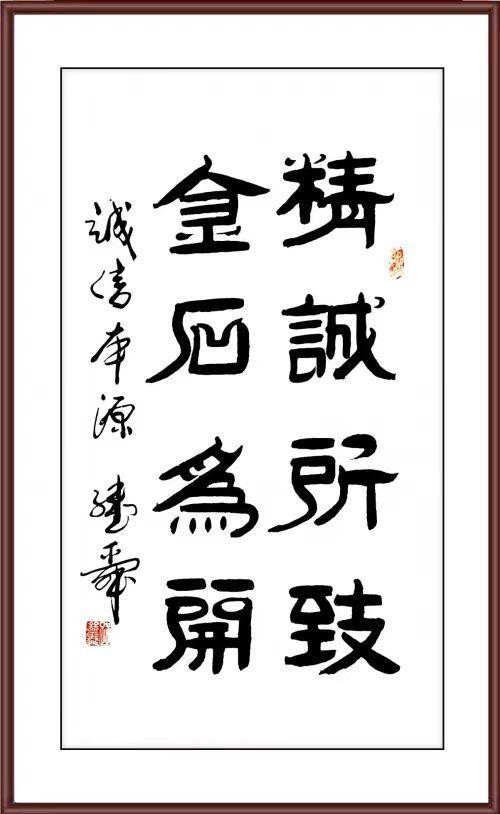 精誠所致
金石為開
誠信本源